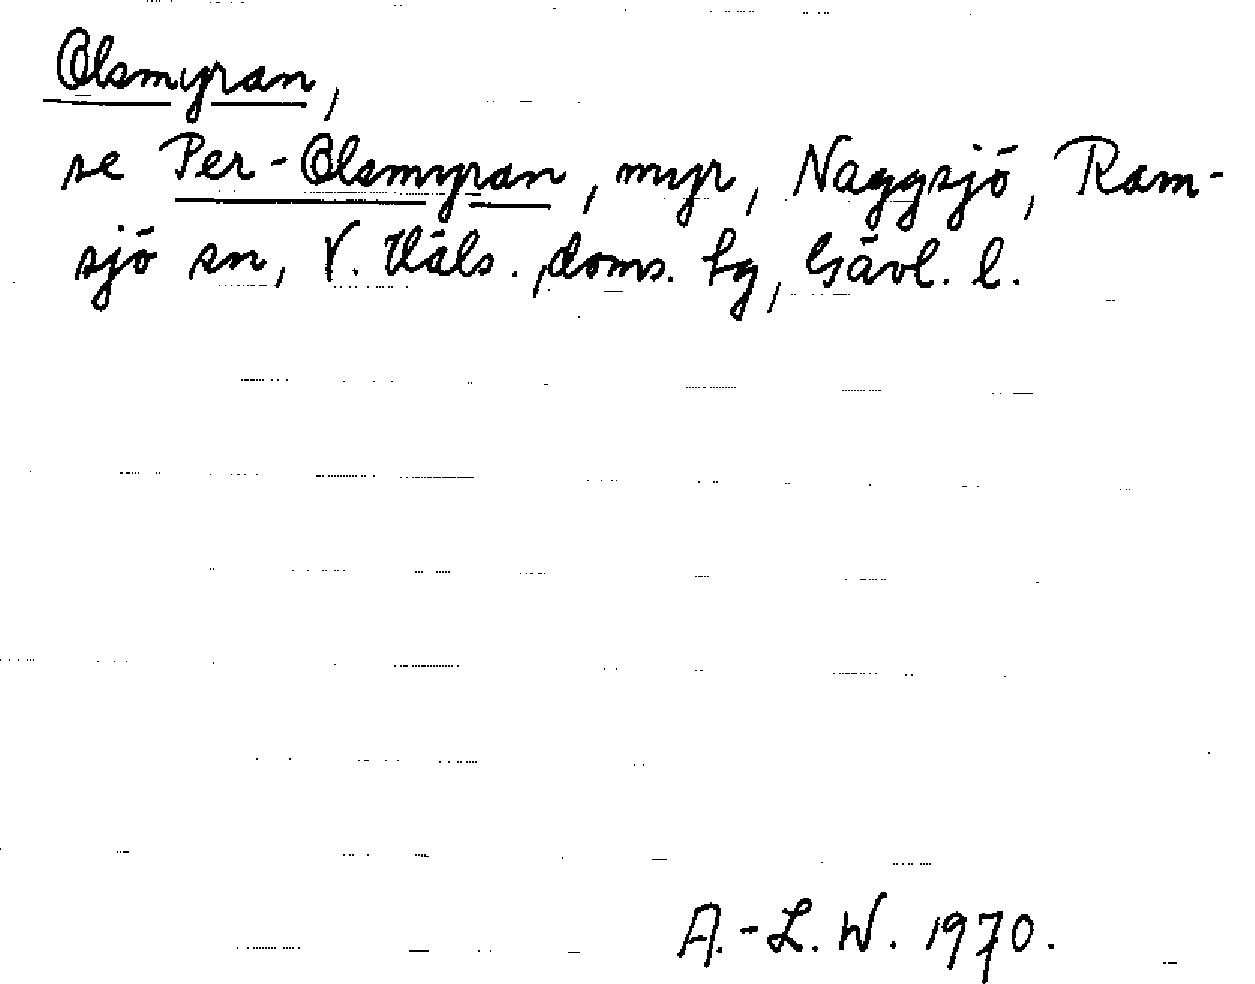 Olsmyran,
se Per-Olsmyran, myr, Naggsjö, Ram-
sjö sn, V. Häls. doms. hg, Gävl. l.
A.-L. W. 1970.